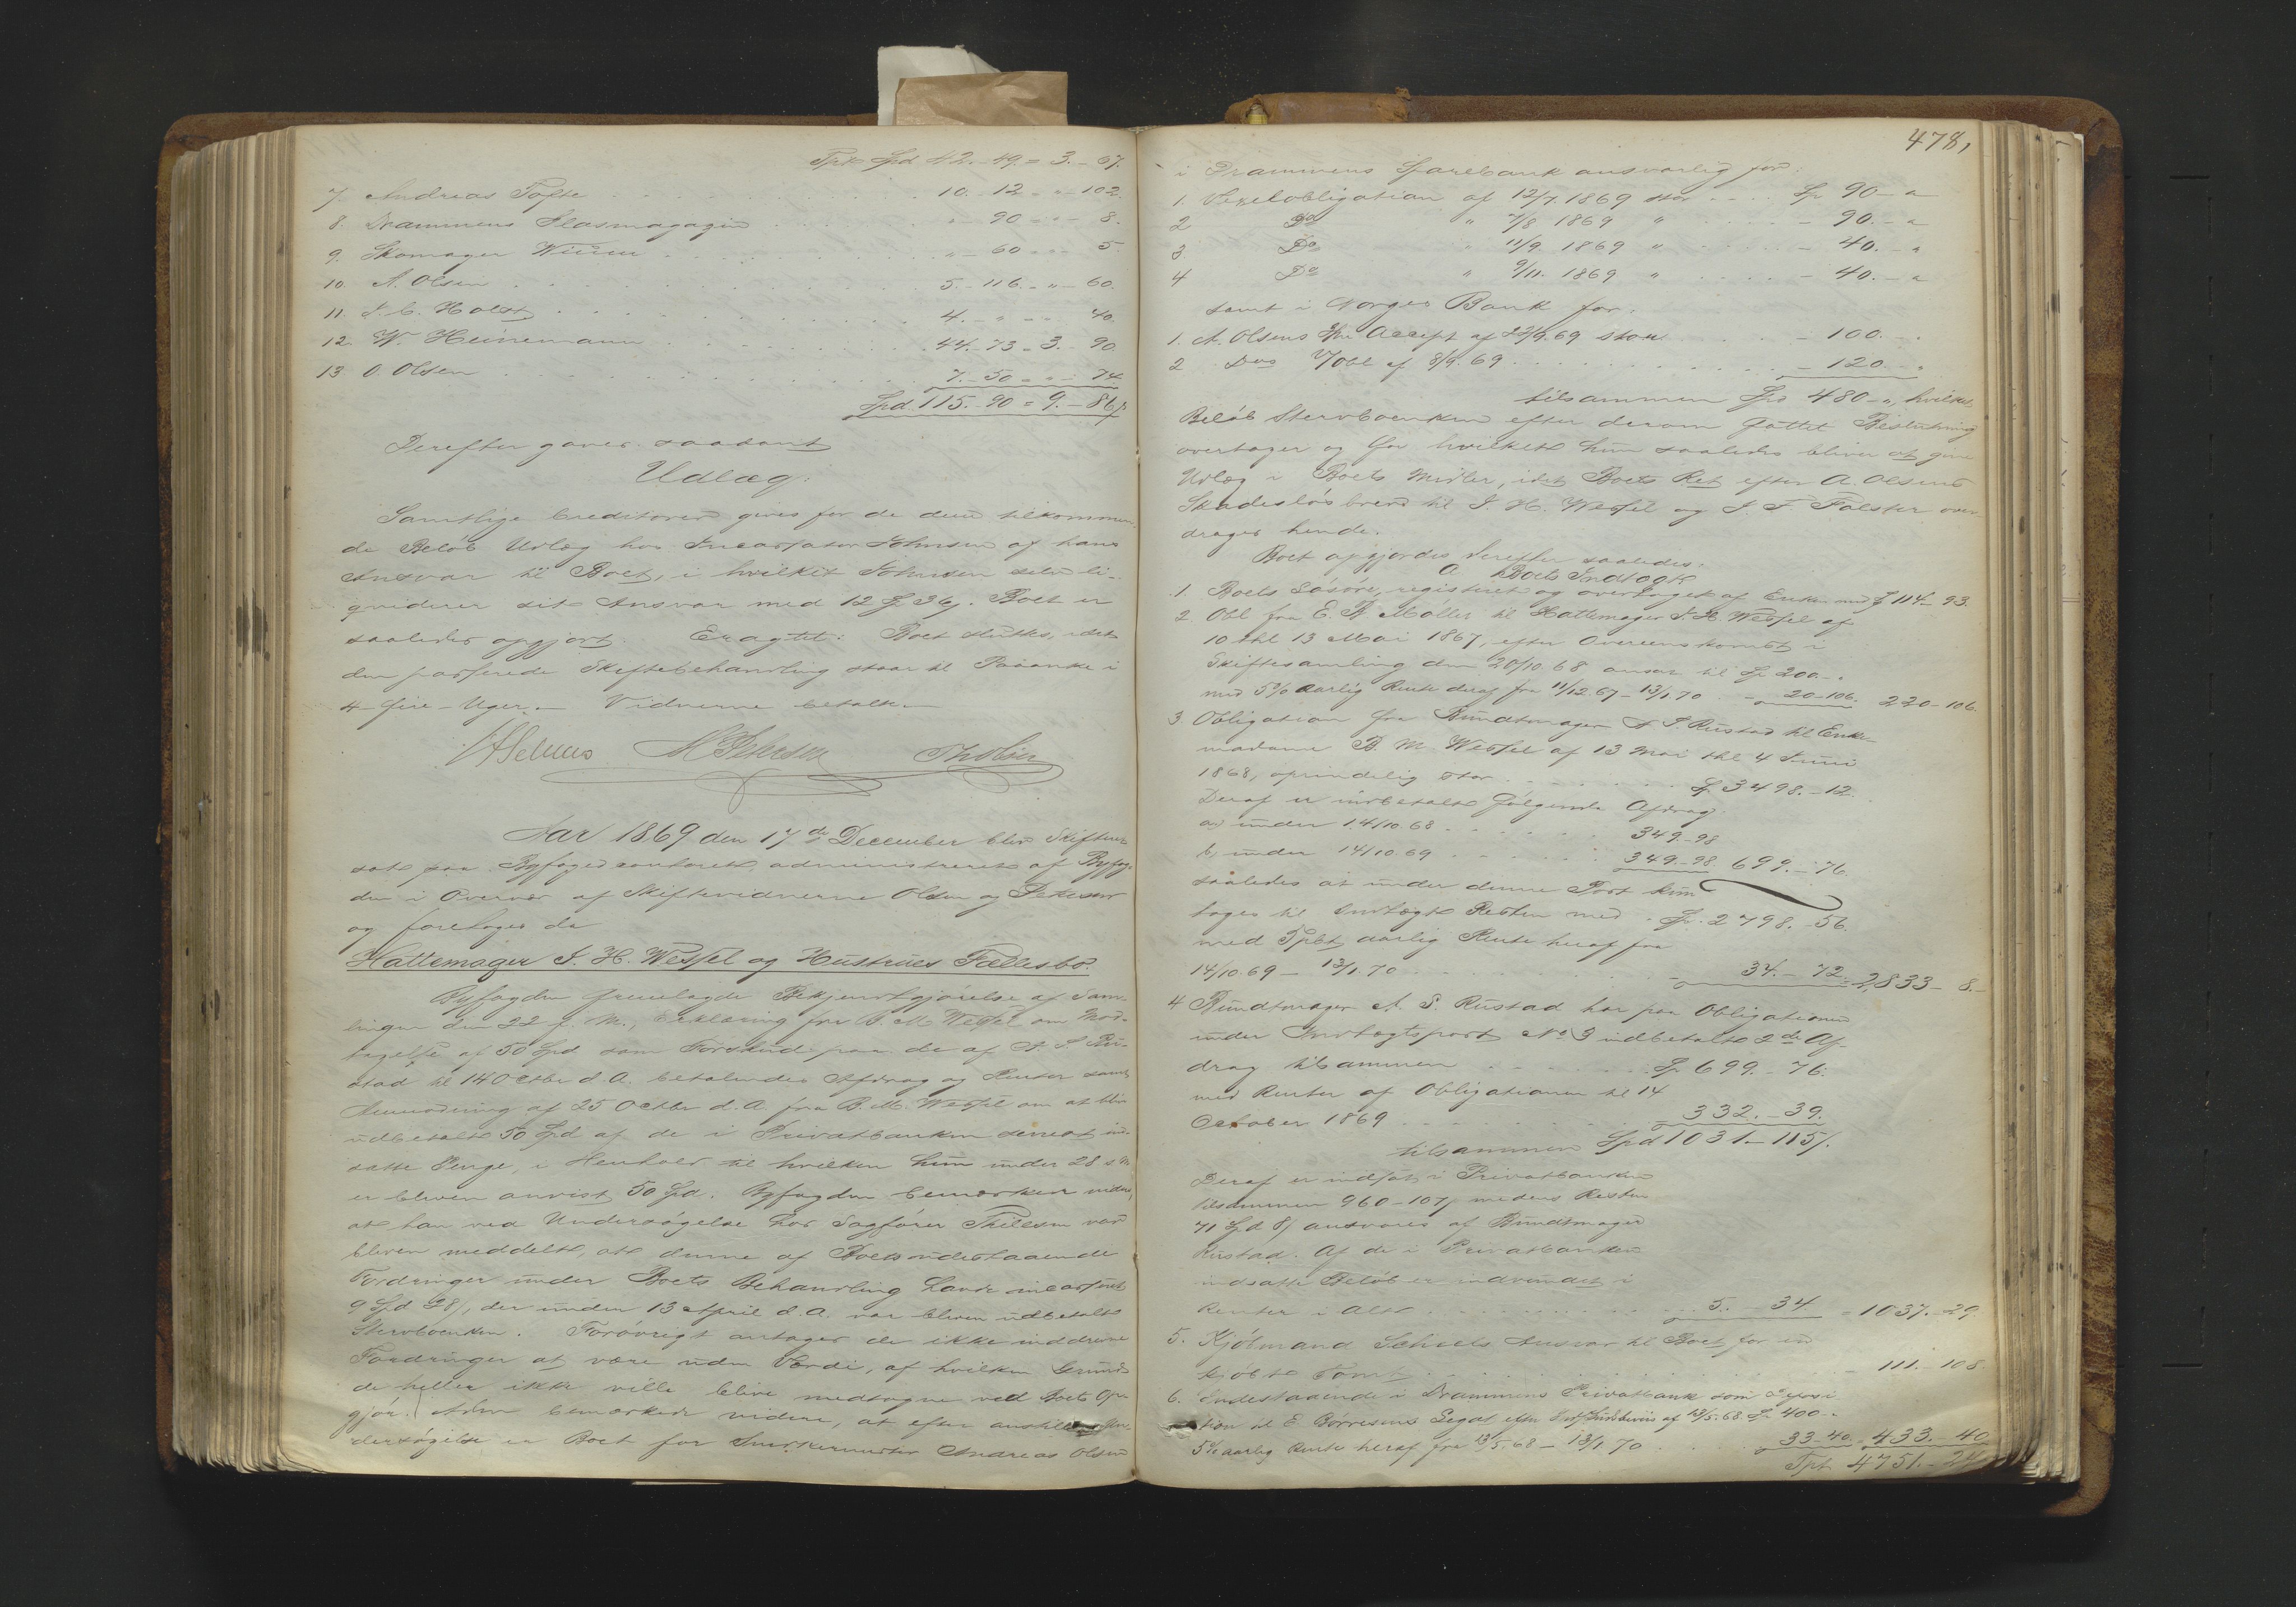 Tpt Spd 42.-49.=3.-67.
7. Andreas Tofte 10.-12 = „-102.
8. Drammens Glasmagazin „-90 = „- 8.
9. Skomager Wiüm „-60 = „- 5.
10. A. Olsen 5.-116.= „-60.
11. J. C. Holst 4.-„ = „-40
12. W. Heinemann 44.-73 = 3.-90
13. O. Olsen 7.-50 = „-74
Spd 115.-90 = 9.-86/.
Derefter gaves saadant
Udlæg:
Samtlige Creditorer gives for de dem tilkommen-
de Beløb Udlæg hos Incassator Johnsen af hans
Ansvar til Boet, i hvilket Johnsen selv li-
qviderer sit Ansvar med 12 Sp 36/. Boet er
saaledes opgjort. Eragtet: Boet sluttes, idet
den passerede Skiftebehandling staar til Paaanke i
4 - fire - Uger. - Vidnerne betalt. -
Aar 1869 den 17de December blev Skifteret
sat paa Byfogedcontoret, administreret af Byfoge-
den i Overvær af Skiftevidnerne Olsen og Petersen
og foretoges da
Hattemager J. H. Wessel og Hustrues Fællesbo.
Byfogden fremlagde Bekjendtgjørelse af Sam-
lingen den 22 f. M., Erklæring fra B. M. Wessel om Mod-
tagelse af 50 Spd som Forskud paa de af A. S. Ru-
stad til 14 Octbr d. A. betalendes Afdrag og Renter samt
Anmodning af 25 Octbr d. A. fra B. M. Wessel om at blive
udbetalt 50 Spd af de i Privatbanken senest ind-
satte Penge, i Henhold til hvilken hun under 28 s. M
er bleven anvist 50 Spd. Byfogden bemærkede videre,
at han ved Undersøgelse hos Sagfører Thilesen var
bleven meddelt, at denne af Boets udestaaende
Fordringer under Boets Behandling havde incasseret
9 Spd 38/, der under 13 April d. A. var bleven udbetalt
Stervboenken. Forøvrigt antages de ikke inddrevne
Fordringer at være uden Værdi, af hvilken Grund
de heller ikke ville blive medtagne ved Boets Op-
gjør. Adm bemærkede videre, at efter anstillet Un-
dersøgelse er Boet for Snedkermester Andreas Olsen
478,
i Drammens Sparebank ansvarlig for:
1. Vexelobligation af 12/7. 1869 stor Sp 90 - „
2 Do „ 7/8 1869 „ - 90. - „
3. Do „ 11/9. 1869 „ - 40. - „
4 Do „ 9/11. 1869 „ - 40. - „
samt i Norges Bank for:
1. A. Olsens Accept af 22/9. 69 stor - 100. - „
2 Dos V/Obl af 8/9. 69 - 120 - „
tilsammen Spd 480 - „, hvilket
Beløb Stervboenken efter derom fattet Beslutning
overtager og for hvilket hun saaledes bliver at give
Udlæg i Boets Midler, idet Boets Ret efter A. Olsens
Skadesløsbrev til J. H. Wessel og J. F. Falster over-
drages hende.
Boet opgjordes derefter saaledes.
A Boets Indtægt
1. Boets Løsøre, registreret og overtaget af Enken med Sp 114 - 93.
2. Obl fra E. A. Møller til Hattemager J. H. Wessel af
10 thl 13 Mai 1867, efter Overeenskomst i
Skiftesamling den 20/10. 68 ansat til Sp 200 - „
med 5% aarlig Rente deraf fra 11/12. 67 - 13/1. 70 - 20 - 106. 220 - 106.
3 Obligation fra Bundtmager A. S. Rustad til Enke-
madame B. M. Wessel af 13 Mai thl 4 Juni
1868, oprindelig stor Sp 3498. - 12.
Deraf er indbetalt følgende Afdrag:
a, under 14/10. 68 349. - 98
b, under 14/10. 69 349. - 98. 699. - 76.
saaledes at under denne Post kun
tages til Indtægt Resten med Sp. 2798. - 56.
med 5 pCt aarlig Rente heraf fra
14/10. 69 - 13/1. 70 - 34. - 72. - 2,833 - 8. -
4 Bundtmager A. S. Rustad har paa Obligationen
under Indtægtspost No 3 indbetalt 2de Af-
drag tilsammen Sp 699. - 76.
med Renter af Obligationen til 14
October 1869 332. - 39.
tilsammen Spd 1031. - 115/.
Deraf er indsat i Privatbanken
tilsammen 960 - 107/ medens Resten
71 Spd 8/ ansvares af Bundtmager
Rustad. Af de i Privatbanken
indsatte Beløb er indvundet i
Renter i Alt 5. - 34 - 1037. - 29.
5. Kjøbmand Scheels Ansvar til Boet for en
kjøbt Tomt - 111. - 108
6. Indestaaende i Drammens Privatbank som Deposi-
tion til E. Børresens Legat efter af 13/5. 68 Sp 400 - „
5% aarlig Rente heraf fra 13/5. 68 - 13/1 70 33 - 40. - 433. - 40
Tpt 4751. - 24